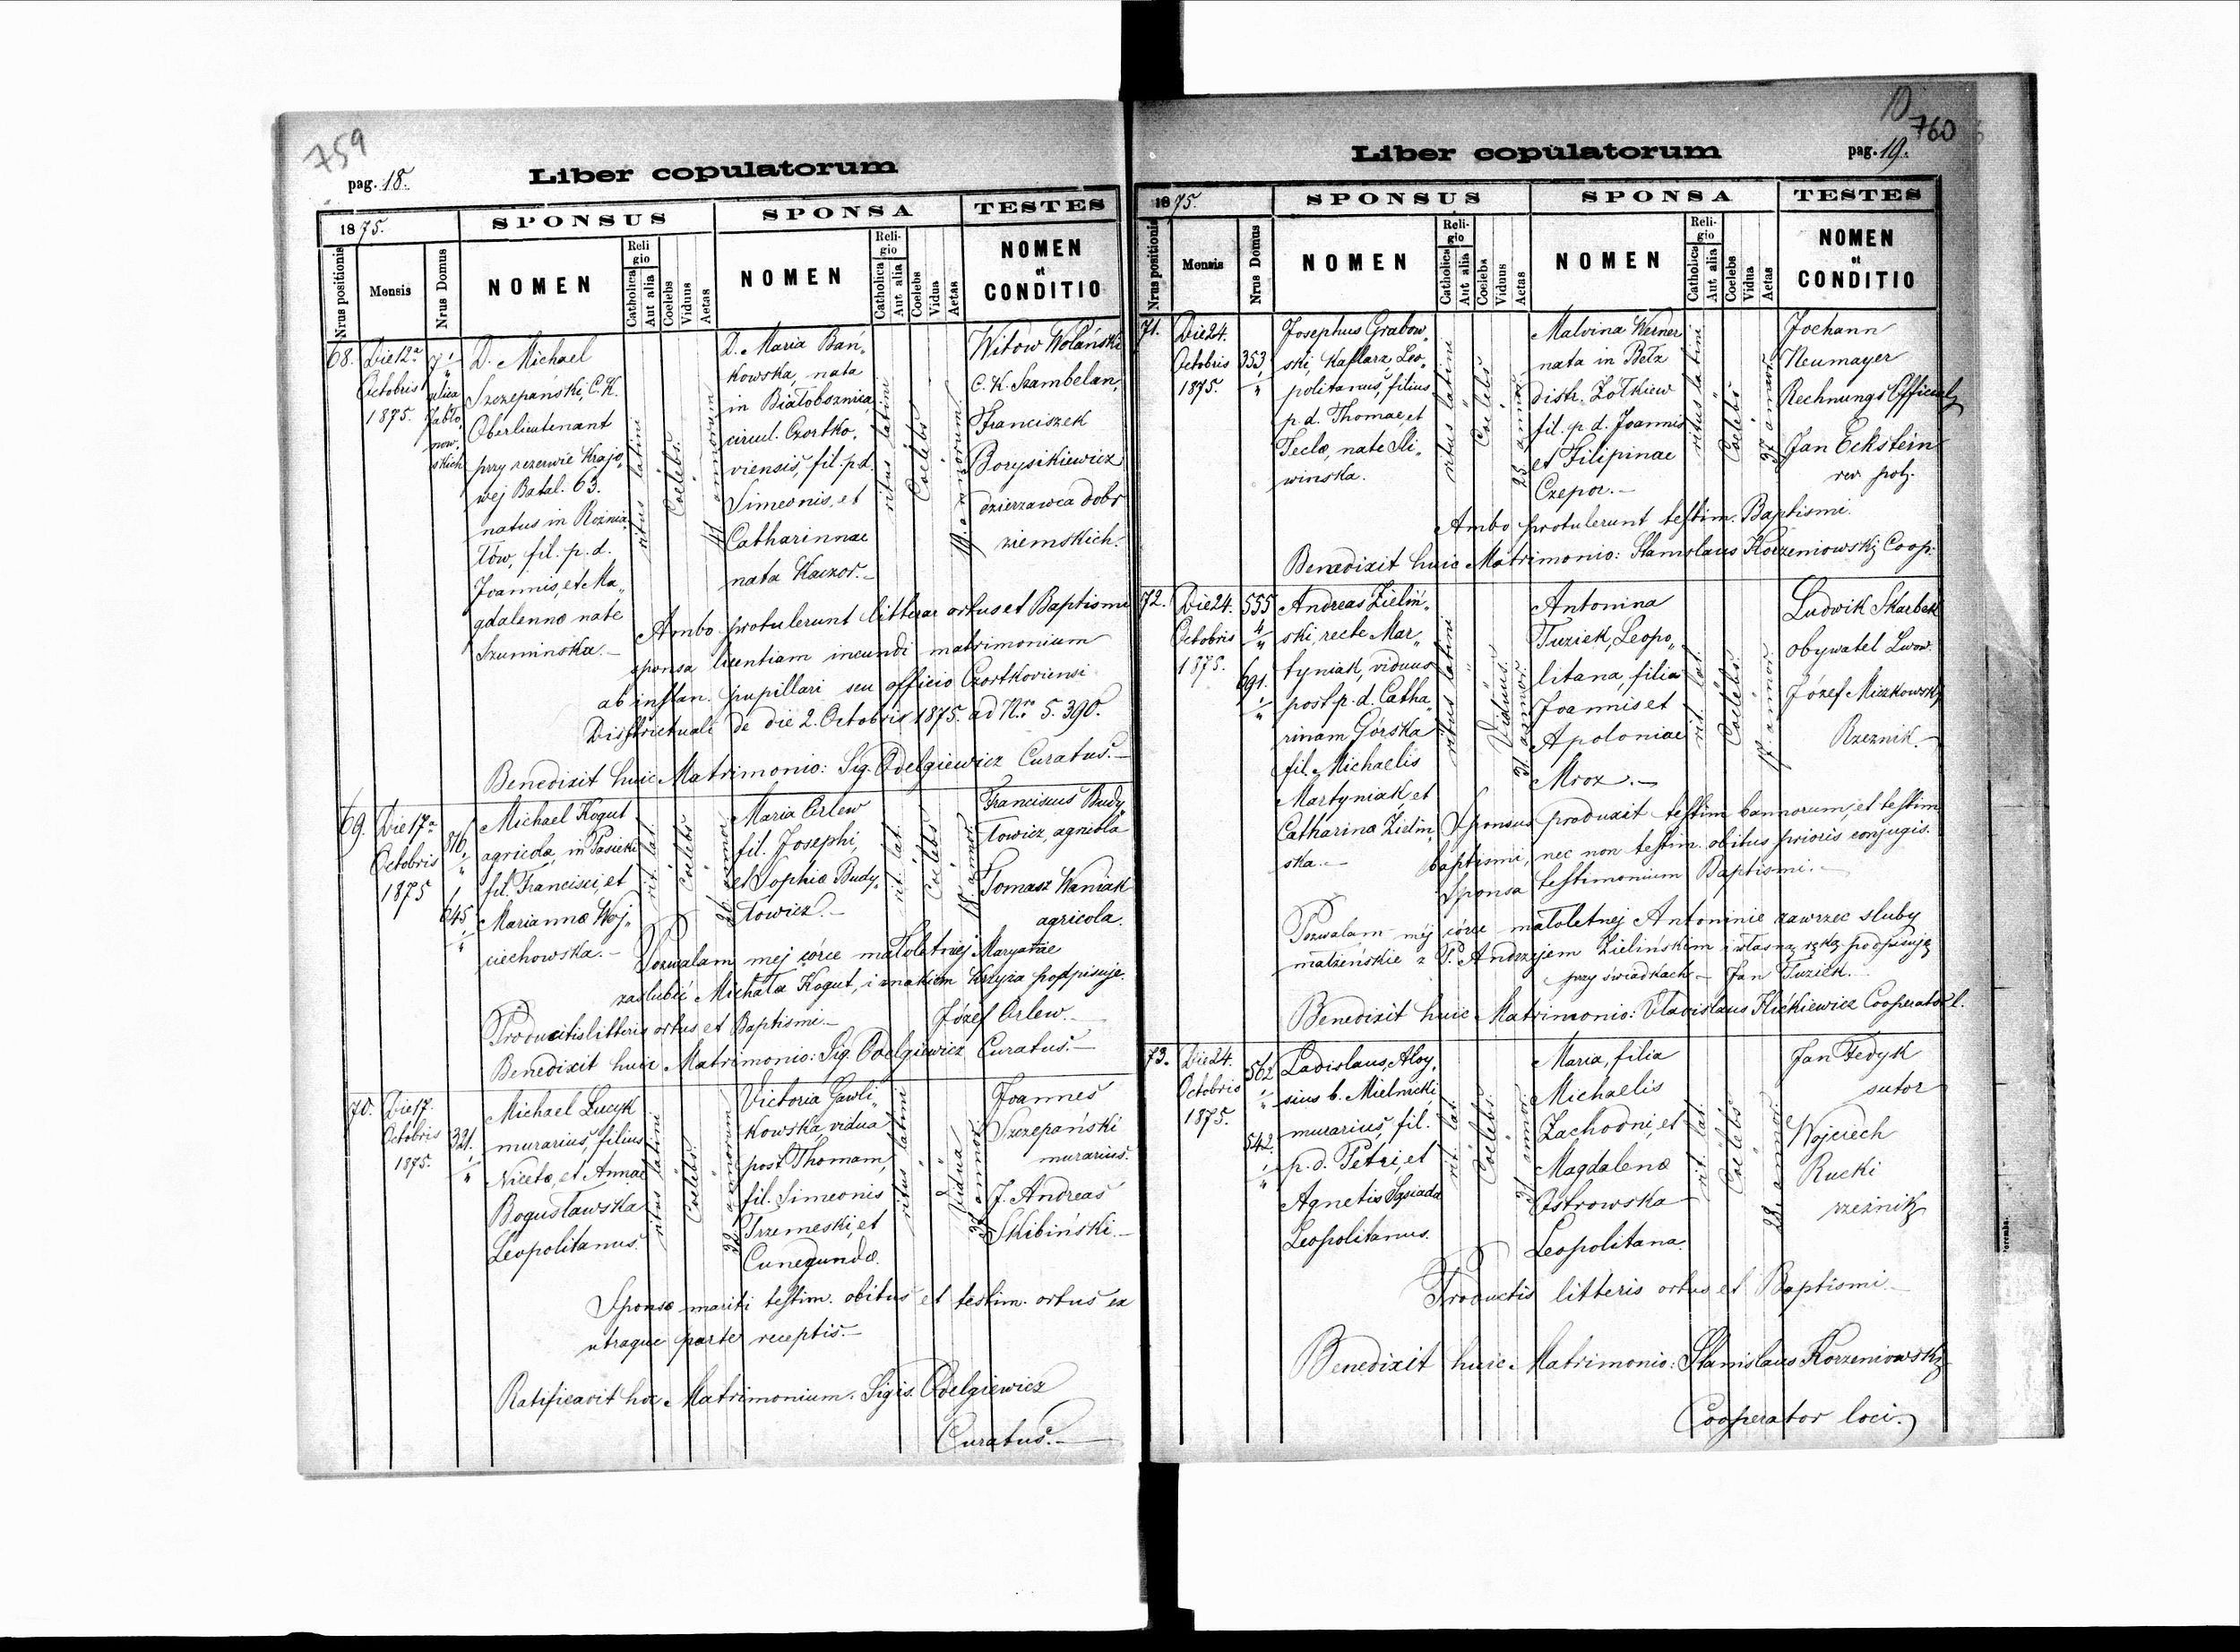 759
Liber copulatorum
pag. 18.
1875.
SPONSUS
SPONSA
TESTES
Nrus positionis
Mensis
Nrus Domus
NOMEN
Religio
Catholica
Aut alia
Coelebs
Viduus
Aetas
NOMEN
Religio
Catholica
Aut alia
Coelebs
Vidua
Aetas
NOMEN
et
CONDITIO
68.
Die 12a
Octobris
1875.
7
ulica
Jabło„
now„
skich
D. Michael
Szczepański, C.K.
Oberlieutenant
przy rezerwie Krajo„
wej Batal. 63.
natus in Rożnia„
tów, fil. p. d.
Joannis, et Ma„
gdalennæ nate
Szuminska.–
ritus latini
Coelebs.
annorum
D. Maria Bań„
kowska, nata
in Białoboznica,
circul. Czortko„
viensis, fil. p.d.
Simeonis, et
Catharinnae
nata Kaczor.–
ritus latini
Coelebs
19 annorum
Witow Wolański
C. K. Szambelan,
Franciszek
Borysikiewicz
dzierzawca dobr
ziemskich.
Ambo protulerunt litteras ortus et Baptismi
sponsa licentiam incundi matrimonium
ab instan. pupillari seu officio Czortkoviensi
Districtuali de die 2. Octobris 1875. ad Nro 5.390.
Benedixit huic Matrimonio: Sig. Odelgiewicz Curatus.–
69.
Die 17a
Octobris
1875
816
645
Michael Kogut
agricola, in Pasieki
fil. Francisci, et
Mariannæ Woj„
ciechowska.–
rit. lat.
Coelebs
Maria Orlew
fil. Josephi,
et Sophiæ Budy„
łowicz.–
rit. lat.
Coelebs
18 annor.
Franciscus Budy„
łowicz, agricola
Tomasz Waniak
agricola.
Pozwalam mej córce małoletniej Maryannie
zaślubić Michała Kogut, i znakiem Krzyża podpisuje.
Józef Orlew.–
Productis litteris ortus et Baptismi.–
Benedixit huic Matrimonio: Sig. Odelgiewicz Curatus.–
70.
Die 17.
Octobris
1875.
321.
Michael Lucyk
murarius, filius
Nicetæ, et Annae
Bogusławska
Leopolitanus.
ritus latini
Coelebs
annorum
Victoria Gawli„
kowska, vidua
post Thomam,
fil. Simeonis
Trzemeski, et
Cunegundæ.
ritus latini
Vidua
annor.
Joannes
Szczepański
murarius.
J. Andreas
Skibiński.–
Sponsæ mariti testim. obitus et testim. ortus ex
utraque parte receptis.–
Ratificavit hoc Matrimonium. Sigis. Odelgiewicz
Curatus.–
10
760
Liber copulatorum
pag. 19.
1875.
SPONSUS
SPONSA
TESTES
Nrus positionis
Mensis
Nrus Domus
NOMEN
Religio
Catholica
Aut alia
Coelebs
Viduus
Aetas
NOMEN
Religio
Catholica
Aut alia
Coelebs
Vidua
Aetas
NOMEN
et
CONDITIO
71.
Die 24.
Octobris
1875.
353
Josephus Grabow„
ski, Kaflarz, Leo„
politanus, filius
p. d. Thomae, et
Teclæ, nate Sli„
winska.
ritus latini
Coelebs
25 annor.
Malvina Werner
nata in Bełz
distr. Żołkiew
fil. p. d. Joannis
et Filipinae
Czepor.–
ritus latini
Coelebs
37 annor.
Johann
Neumayer
Rechnungs Official
Jan Eckstein
rev. polz.
Ambo protulerunt testim. Baptismi.
Benedixit huic Matrimonio: Stanislaus Korzeniowski Coop.
72.
Die 24.
Octobris
1875.
555
4
691.
Andreas Zieliń„
ski, recte Mar„
tyniak, viduus
post p. d. Catha„
rinam Górska
fil. Michaelis
Martyniak, et
Catharina Zielin„
ska.–
ritus latini
Viduus.
31 annor.
Antonina
Tuziek, Leopo„
litana, filia
Joannis et
Apoloniae
Mroz.–
rit. lat.
Coelebs.
17 annor.
Ludwik Skarbek
obywatel Lwow.
Józef Miczkowski
Rzeznik.–
Sponsus produxit testim. bannorum, et testim.
baptismi, nec non testim. obitus prioris conjugis.
Sponsa testimonium Baptismi.–
Pozwalam mej córce małoletnej Antoninie zawrzec sluby
małżeńskie z P. Andrzejem Zielińskim i własną ręką podpisuję
przy świadkach.– Jan Tuziek.–
Benedixit huic Matrimonio: Vladislaus Flićkiewicz Cooperator l.
73.
Die 24.
Octobris
1875.
562
542.
Ladislaus, Aloy„
sius b. Mielnicki,
murarius, fil.
p. d. Petri, et
Agnetis Sąsiada
Leopolitanus.
rit. lat.
Coelebs.
31 annor.
Maria, filia
Michaelis
Zachodni, et
Magdalenæ
Ostrowska
Leopolitana.
rit. lat.
Coelebs
28 annor.
Jan Fedyk
sutor
Wojciech
Rucki
rzeźnik
Productis litteris ortus et Baptismi.–
Benedixit huic Matrimonio: Stanislaus Korzeniowski
Cooperator loci.